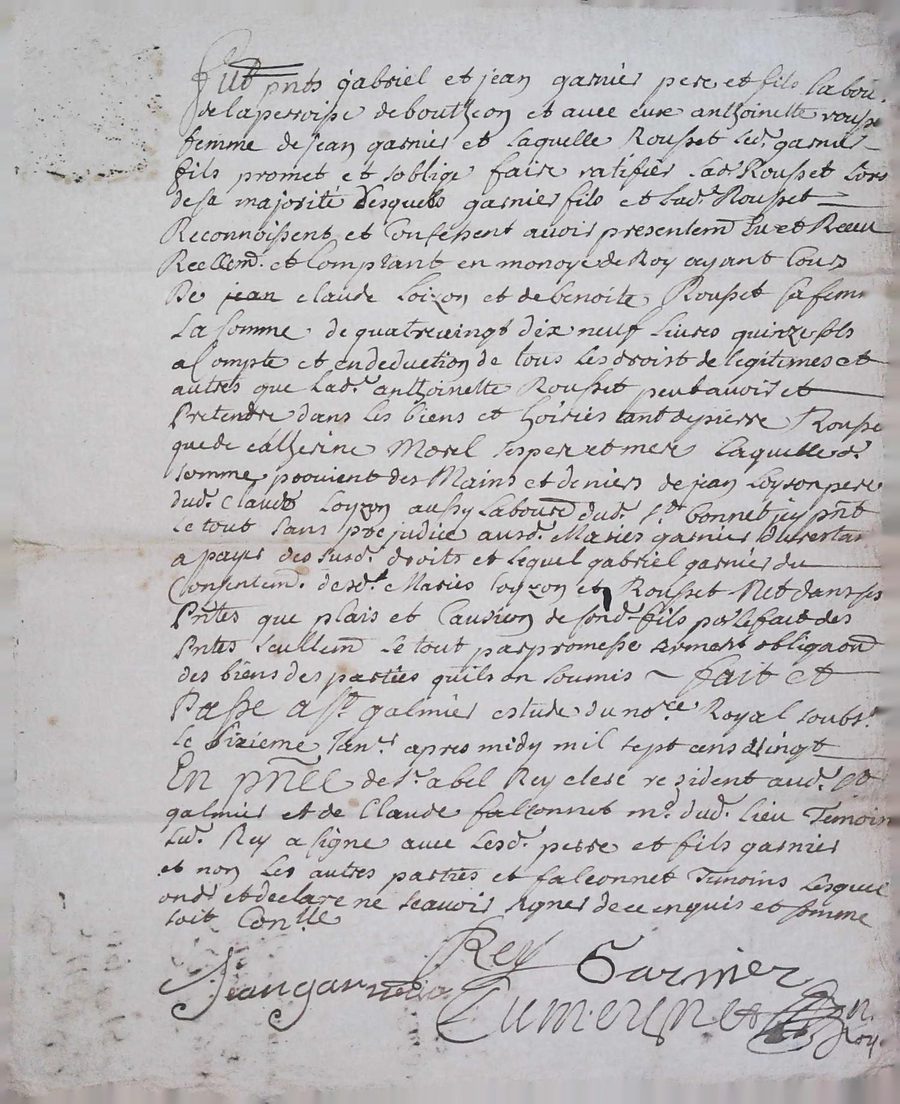 fut pnts gabriel et jean garnier pere et fils labour.
de la perroisse de boutheon et avec eux anthoinette rousse
femme de jean garnier et laquelle Rousset led. garnier
fils promet et soblige faire ratifier lad. Rousset lors
de sa majorité desquels garnier fils et lad. Rousset
Reconnoissent et Confessent avoir presentem Eu et Receu
Reellem. et Comptant en monoye de Roy ayant Cours
De jean claude loizon et de benoite Rousset sa femme
La somme de quatrevingt dix neuf livres quinze sols
a Compte et en deduction de tous les droist de legitimes et
autres que lad. anthoinette Rousset peut avoir et
Pretendre dans les biens et hoiries tant de pierre Rousse
que de catherine Morel ses pere et mere laquelle d.
somme provient des Mains et deniers de jean loyson pere
dud. Claude Loyzon aussy labour dud. St. bonnet icy pnt
le tout sans prejudice ausd. Maries garnier du restan
a payer des susd. droits et lequel gabriel garnier du
Consentem. desd. Maries loyzon et Rousset Net dans ses
Pntes que pleis et Caution de sond. fils po le fait des
Pntes seullem le tout par promesse serment obligaon
des biens des parties quils on soumis ~ fait et
Passe a St. galmier estude du no.re Royal soubs.
le sixieme Janr. apres midy mil sept cens vingt
En pnce de sr. abel Rey clerc resident aud. St
galmier et de Claude falconnet md. dud. lieu Temoin
led. Rey a signe avec lesd. perre et fils garnier
et non les autres parties et falconnet Temoins lesquel
ond et declare ne scavoir signer de ce enquis et somme
soit Con.lle
Rey Garnier
Jean garnier
Cumerinet n.
Roy.